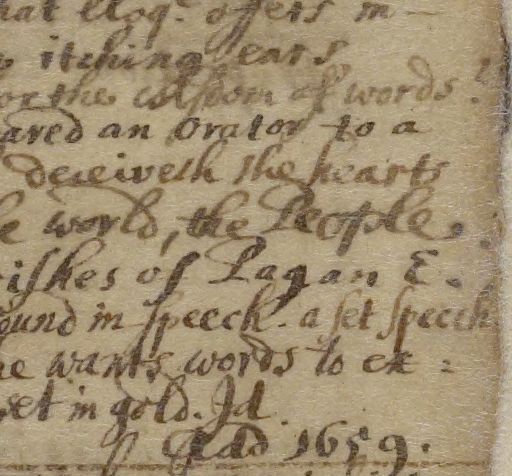 hat Eloq. offers in
itching ears
or the wisdom of words.
ared an Orator to a
deceiveth the hearts
e world, the People.
ishes of Pagan E.
ound in speech. a set speech
he wants words to ex=
set in gold. Id.
Glad 1659.